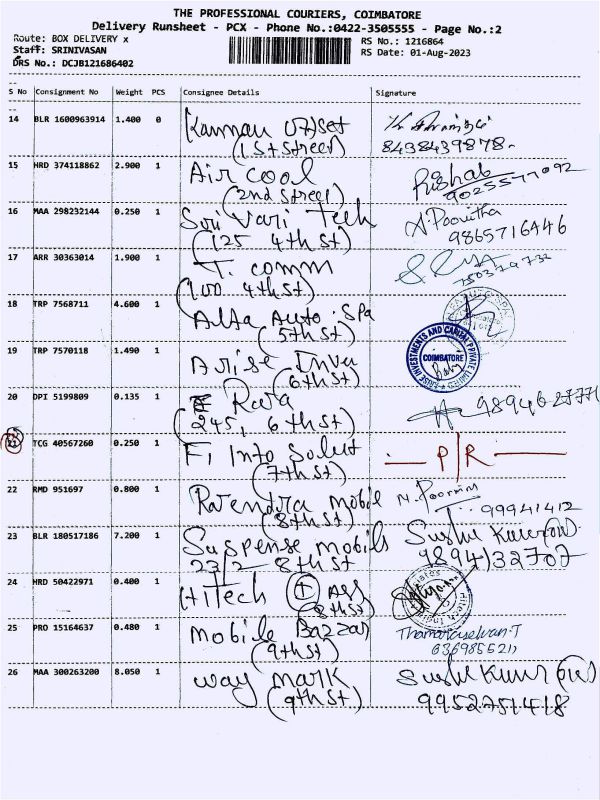 THE PROFESSIONAL COURIERS, COIMBATORE
Delivery Runsheet - PCX - Phone No.:0422-3505555 - Page No.:2
Route: BOX DELIVERY x
RS No.: 1216864
Staff: SRINIVASAN
RS Date: 01-Aug-2023
DRS No.: DCJB121686402
S No Consignment No Weight PCS Consignee Details Signature
14 BLR 1600963914 1.400 0 Kannan Offset
(1st street) 8438439878
15 HRD 374118862 2.900 1 Air cool Rishab
(2nd street)
16 MAA 298232144 0.250 1 Sri Vari Tech A. Poovitha
(125 4th st) 9865716446
17 ARR 30363014 1.900 1 T. comm
(100 4th st)
18 TRP 7568711 4.600 1 Alfa Auto Spa
(5th st)
19 TRP 7570118 1.490 1 Arise Inve
(6th st)
ARISE INVESTMENTS AND CAPITAL PRIVATE LIMITED
COIMBATORE
20 DPI 5199809 0.135 1
(245, 6th st)
21 TCG 40567260 0.250 1 Fi Info Solut P/R
(7th st)
22 RMD 951697 0.800 1 Rajendra mobile
(8th st) 99941412
23 BLR 180517186 7.200 1 Suspense mobils
23/2 8th st 9894132707
24 HRD 50422971 0.400 1 Hitech
(8th st)
25 PRO 15164637 0.480 1 Mobile Bazzar Thamaraiselvan-T
(9th st)
26 MAA 300263200 8.050 1 way mark
(9th st) 9952751418